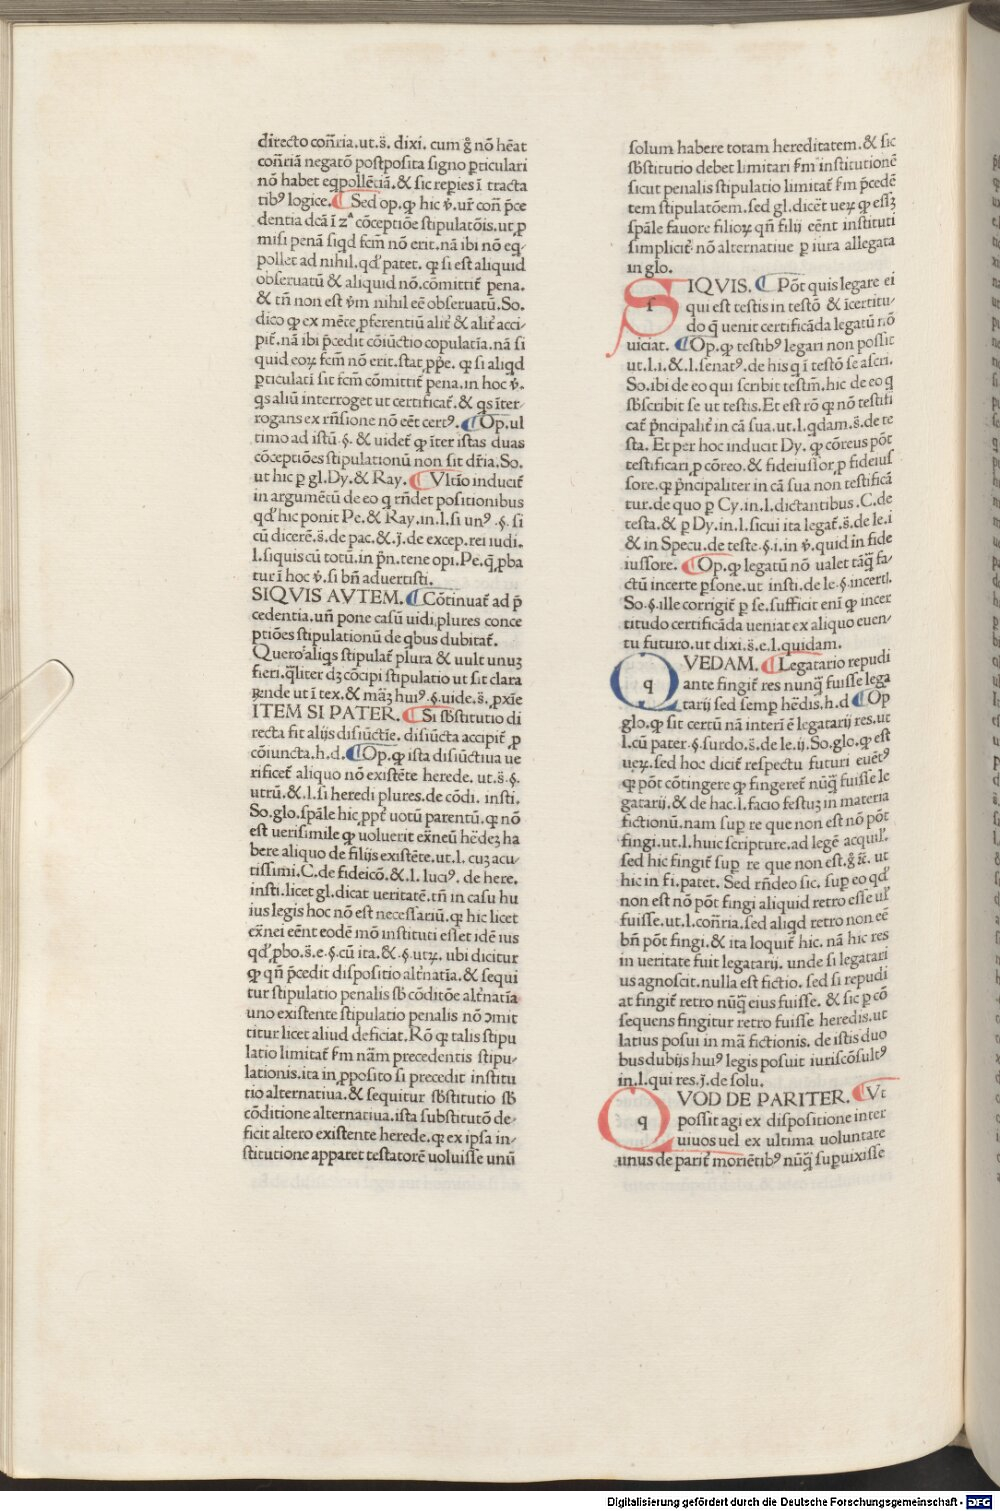 directo cor̄ria.ut.s̄. dixi. cum g̊ nō hēat
cor̄riā negatō postposita signo ꝑticulari
nō habet eqpollētiā.& sic repies ī tracta
tibꝰ logice. ¶ Sed op.ꝙ hic ꝟ. ur̄ con̄ p̄ce
dentia dcā ī zᵃ cōceptiōe stipulatōis.ut ꝓ
misi penā siqd fcm̄ nō erit.nā ibi nō eq-
pollet ad nihil.qđ patet. ꝙ si est aliquid
obseruatū & aliquid nō.cōmittit̄ pena.
& tn̄ non est ꝟm nihil eē obseruatū.So.
dico ꝙ ex mēte ꝓferentiū alit̄ & alit̄ acci-
pit̄.nā ibi p̄cedit cōiūctio copulatīa.nā si
quid eoꝝ fcm̄ nō erit.stat ꝓpe. ꝙ si aliqd
ꝑticulati sit fcm̄ cōmittit̄ pena.in hoc ꝟ.
qs aliū interroget ut certificat̄.& qs īter-
rogans ex rn̄sione nō eēt certꝰ. ¶ Op.ul
timo ad istū .§. & uidet̄ ꝙ īter istas duas
cōceptiōes stipulationū non sit dr̄ia.So.
ut hic ꝑ gl.Dy.& Ray. ¶ Vltīo inducit̄
in argumētū de eo q rn̄det positionibus
qđ hic ponit Pe.& Ray.in.l.si unꝰ .§. si
cū dicerē.s̄.de pac.&.j̄.de excep.rei iudi.
l.siquis cū totū.in pn̄.tene opi.Pe.q̄ ꝓba
tur ī hoc ꝟ.si bn̄ aduertisti.
SIQVIS AVTEM. ¶ Cōtinuat̄ ad p̄
cedentia.un̄ pone casū uidi.plures conce
ptiōes stipulationū de qbus dubitat̄.
Quero aliqs stipulat̄ plura & uult unuꝫ
fieri.q̄liter dꝫ cōcipi stipulatio ut sit clara
ꝛende ut ī tex.& māꝫ huiꝰ .§.uide.s̄. ꝓxīe
ITEM SI PATER. ¶ Si sb̄stitutio di
recta fit alijs disiūctīe. disiūcta accipit̄ ꝓ
cōiuncta.h.d. ¶ Op.ꝙ ista disiūctiua ue
rificet̄ aliquo nō existēte herede. ut .s̄.§.
utrū.&.l.si heredi plures.de cōdi. insti.
So.glo.spāle hic ꝓpt̄ uotū parentū.ꝙ nō
est uerisimile ꝙ uoluerit ex̄neū hēdeꝫ ha
bere aliquo de filijs existēte.ut.l. cuꝫ acu-
tissimi.C.de fideicō.&.l. luciꝰ. de here.
insti.licet gl.dicat ueritatē.tn̄ in casu hu
ius legis hoc nō est necessariū.ꝙ hic licet
ex̄nei eēnt eodē mō instituti esset idē ius
qđ ꝓbo.s̄.e.§.cū ita.&.§.utꝝ. ubi dicitur
ꝙ qn̄ p̄cedit dispositio alt̄natīa.& sequi
tur stipulatio penalis sb̄ cōditōe alt̄natīa
uno existente stipulatio penalis nō ɔmit
titur licet aliud deficiat. Rō ꝙ talis stipu
latio limitat̄ fm̄ nām precedentis stipu-
lationis.ita in ꝓposito si precedit institu
tio alternatiua.& sequitur sb̄stitutio sb̄
cōditione alternatiua.ista substitutō de-
ficit altero existente herede.ꝙ ex ipsa in-
stitutione apparet testatorē uoluisse unū
solum habere totam hereditatem.& sic
sb̄stitutio debet limitari fm̄ institutionē
sicut penalis stipulatio limitat̄ fm p̄cedē
tem stipulatōem.sed gl.dicēt ueꝝ ꝙ est ꝫ
spāle fauore filioꝝ qn̄ filij eēnt instituti
simplicit̄ nō alternatiue ꝑ iura allegata
in glo.
SIQVIS. ¶ Pōt quis legare ei
qui est testis in testō & īcertitu-
do q̄ uenit certificāda legatū nō
uiciat. ¶ Op.ꝙ testibꝰ legari non possit
ut.l.i.&.l.senatꝰ.de his q ī testō se ascri.
So.ibi de eo qui scribit testm̄.hic de eo q
sb̄scribit se ut testis.Et est rō ꝙ nō testifi
cat̄ p̄ncipalit̄ in cā sua.ut.l.qdam.s̄.de te
sta. Et per hoc inducit Dy. ꝙ cōreus pōt
testificari ꝓ cōreo.& fideiussor ꝓ fideius
sore.ꝙ p̄ncipaliter in cā sua non testificā
tur.de quo ꝑ Cy.in.l.dictantibus .C.de
testa.& ꝑ Dy.in.l.sicui ita legat̄.s̄.de le.i
& in Specu.de teste.§.i.in ꝟ.quid in fide
iussore. ¶ Op.ꝙ legatū nō ualet tāq̄ fa-
ctū incerte ꝑsone.ut insti.de le.§.incerti.
So.§.ille corrigit̄ ꝑ se.sufficit enī ꝙ incer
titudo certificāda ueniat ex aliquo euen-
tu futuro.ut dixi.s̄.e.l.quidam.
QVEDAM. ¶ Legatario repudi
ante fingit̄ res nunq̄ fuisse lega
tarij sed semp hēdis.h.d ¶ Op
glo.ꝙ sit certū nā interī ē legatarij res.ut
l.cū pater.§.surdo.s̄.de le.ij.So.glo.ꝙ est
ueꝝ.sed hoc dicit̄ respectu futuri euētꝰ
ꝙ pōt cōtingere ꝙ fingeret̄ nūq̄ fuisse le
gatarij.& de hac.l.facio festuꝫ in materia
fictionū.nam sup re que non est nō pōt
fingi.ut.l.huic scripture.ad legē acquil'.
sed hic fingit̄ sup re que non est.g̊ ꝛc̄. ut
hic in fi.patet. Sed rn̄deo sic. sup eo qđ
non est nō pōt fingi aliquid retro esse ul'
fuisse.ut.l.con̄ria.sed aliqd retro non eē
bn̄ pōt fingi.& ita loquit̄ hic. nā hic res
in ueritate fuit legatarij. unde si legatari
us agnoscit.nulla est fictio. sed si repudi
at fingit̄ retro nūq̄ eius fuisse. & sic ꝑ cō
sequens fingitur retro fuisse heredis.ut
latius posui in mā fictionis. de istis duo
bus dubijs huiꝰ legis posuit iuriscōsultꝰ
in.l.qui res.j̄.de solu.
QVOD DE PARITER. ¶ Vt
possit agi ex dispositione inter
uiuos uel ex ultima uoluntate
unus de parit̄ moriētibꝰ nūq̄ supuixisse
Digitalisierung gefördert durch die Deutsche Forschungsgemeinschaft - DFG